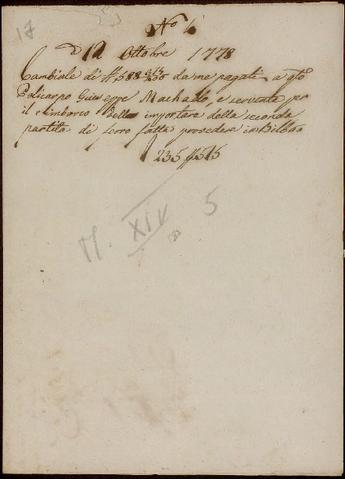 17
No 4
D 12 Ottobre 1778
Cambiale di da me pagati a qto
Policarpo Giuseppe Machado, e servente per
il rimborso dell' importare della seconda
partita di ferro fatta procedere in Bilbao
M. XIV 5